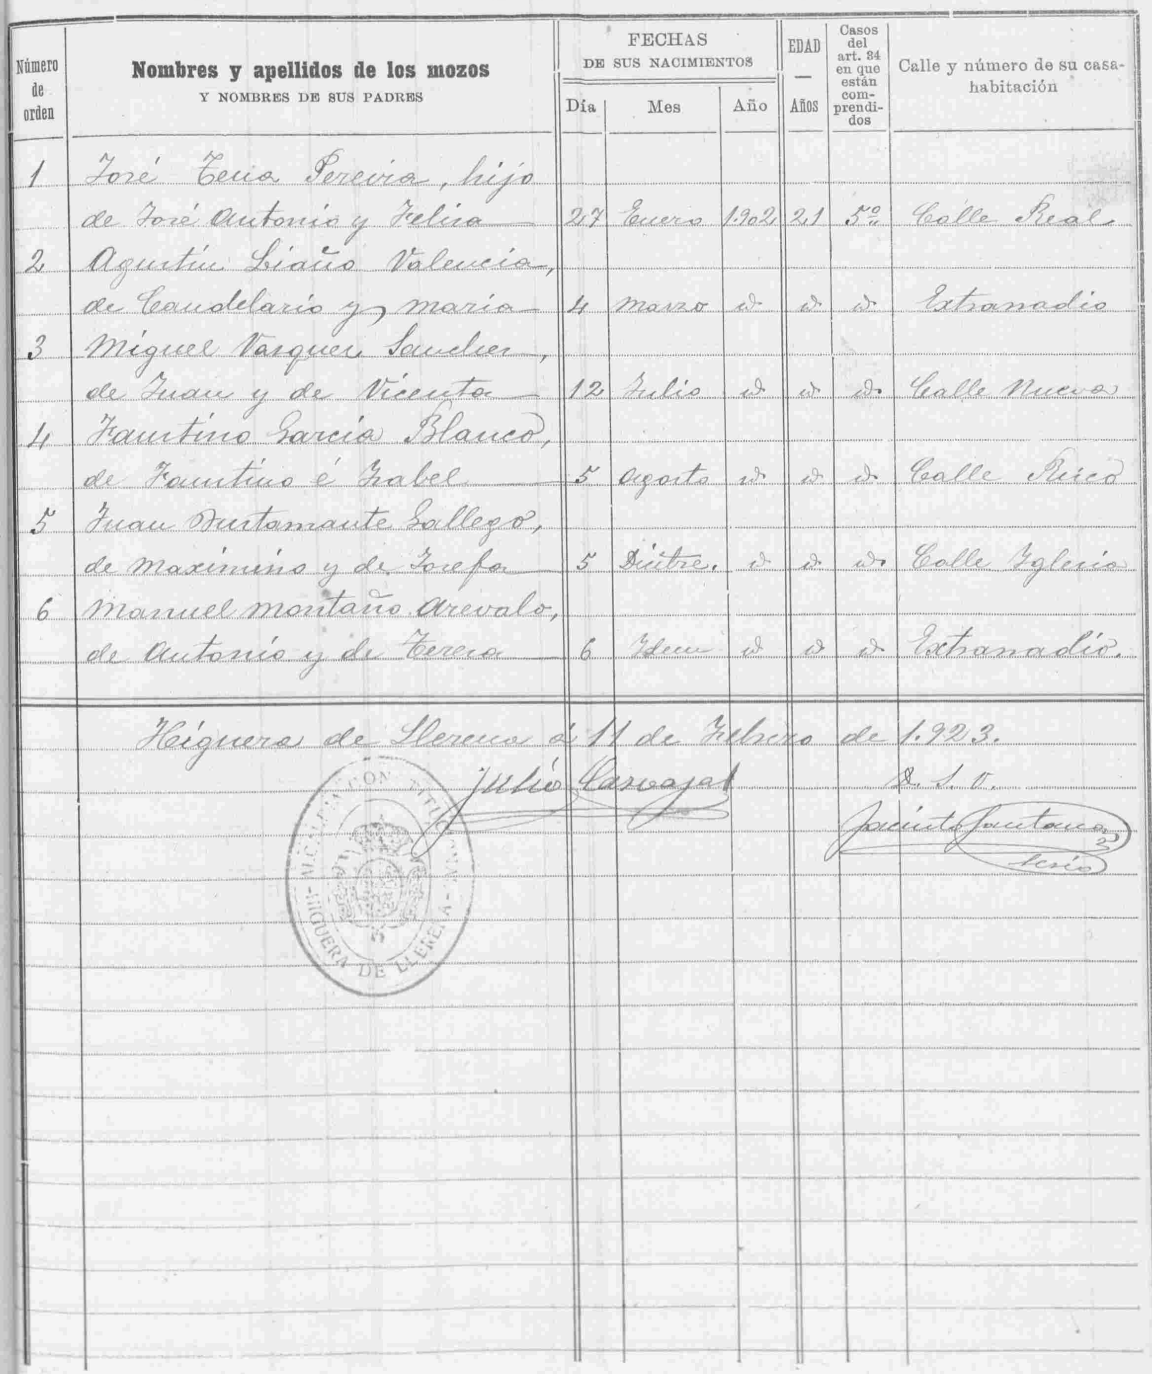 Número de orden
Nombres y apellidos de los mozos
Y NOMBRES DE SUS PADRES
FECHAS
DE SUS NACIMIENTOS
Día Mes Año
EDAD
—
AÑOS
Casos
del
art. 34
en que
están
com-
prendi-
dos
Calle y número de su casa-
habitación
1 José Tena Pereira, hijo
de José Antonio y Felisa 27 Enero 1902 21 5º Calle Real
2 Agustín Liaño Valencia,
de Candelario y maria 4 marzo id id id Extranadio
3 Miguel Vasquez Sanchez,
de Juan y de Vicenta 12 Julio id id id Calle Nueva
4 Faustino Garcia Blanco,
de Faustino é Isabel 5 agosto id id id Calle Risco
5 Juan Bustamante Gallego,
de Maximino y de Josefa 5 id id id Calle Iglesia
6 Manuel montaño arevalo,
de Antonio y de Teresa 6 Idem id id id Extranadio.
Higuera de Llerena á 11 de Febrero de 1.923.
Julio Carvajal
P. S. O.
Jacinto Santana
Srio
ALCALDIA CONSTITUCIONAL
- HIGUERA DE LLERENA -